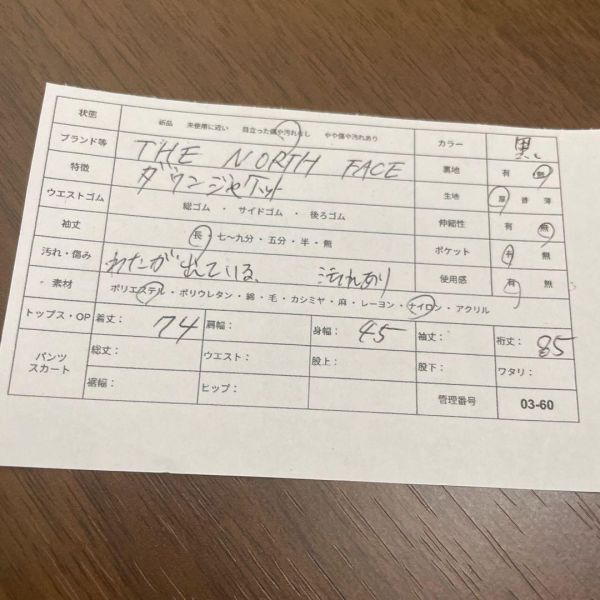 状態 新品 未使用に近い 目立った傷や汚れなし やや傷や汚れあり カラー 黒
ブランド等 THE NORTH FACE 裏地 有 無
特徴 ダウンジャケット 生地 厚 普 薄
ウエストゴム 総ゴム ・ サイドゴム ・ 後ろゴム 伸縮性 有 無
袖丈 長・七〜九分・五分・半・無 ポケット 有 無
汚れ・傷み わたが出ている、 汚れあり 使用感 有 無
素材 ポリエステル・ポリウレタン・綿・毛・カシミヤ・麻・レーヨン・ナイロン・アクリル
トップス・OP 着丈: 74 肩幅: 身幅: 45 袖丈: 裄丈: 85
パンツ スカート 総丈: ウエスト: 股上: 股下: ワタリ:
裾幅: ヒップ: 管理番号 03-60